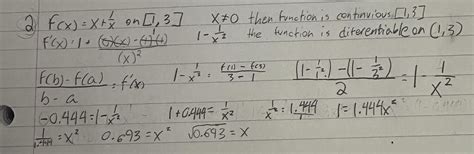 ② f(x) = x + 1/x on [1, 3] x ≠ 0 then function is continuious [1,3]
f'(x): 1 + ((0)(x) - (1)(1))/(x)² 1 - 1/x² the function is diferentiable on (1, 3)
(f(b) - f(a))/(b - a) = f'(x) 1 - 1/x² = (f(1) - f(3))/(3 - 1) ((1 - 1/1²) - (1 - 1/3²))/2 = 1 - 1/x²
-0.444 = 1 - 1/x² 1 + 0.444 = 1/x² 1/x² = 1.444/1 1 = 1.444x²
1/1.444 = x² 0.693 = x² √0.693 = x